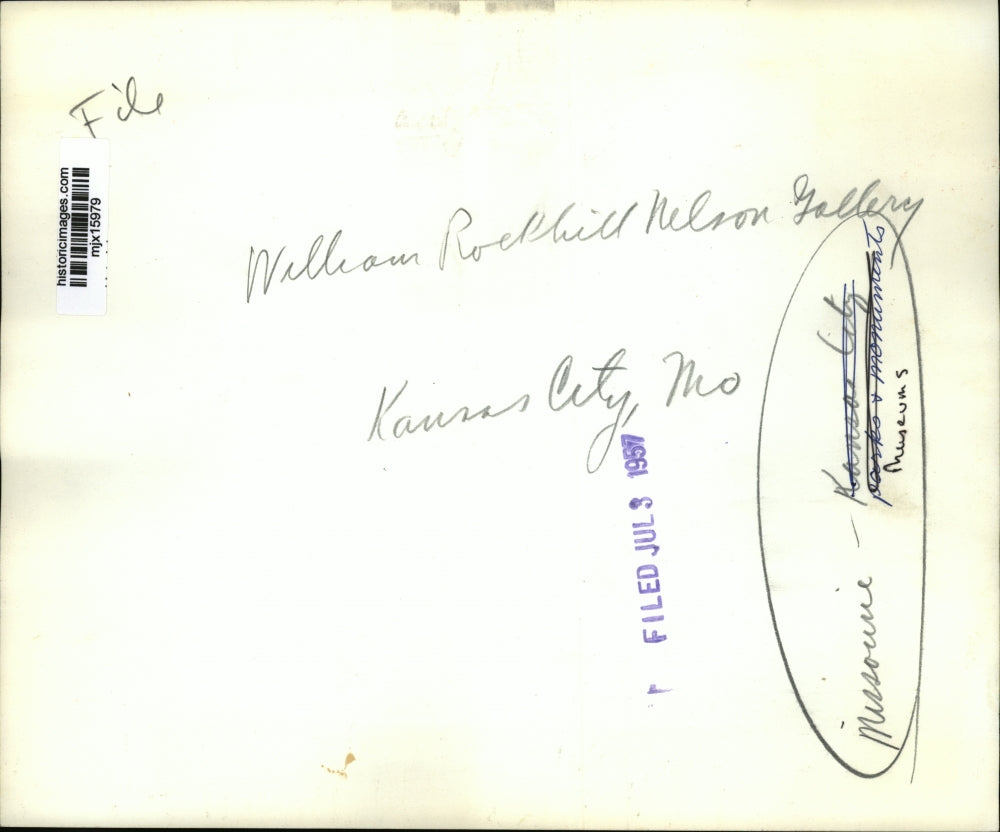 File
historicimages.com
mjx15979
William Rockhill Nelson Gallery
Kansas City, Mo
FILED JUL 3 1957
Missouri - Kansas City
parks & monuments
Museums